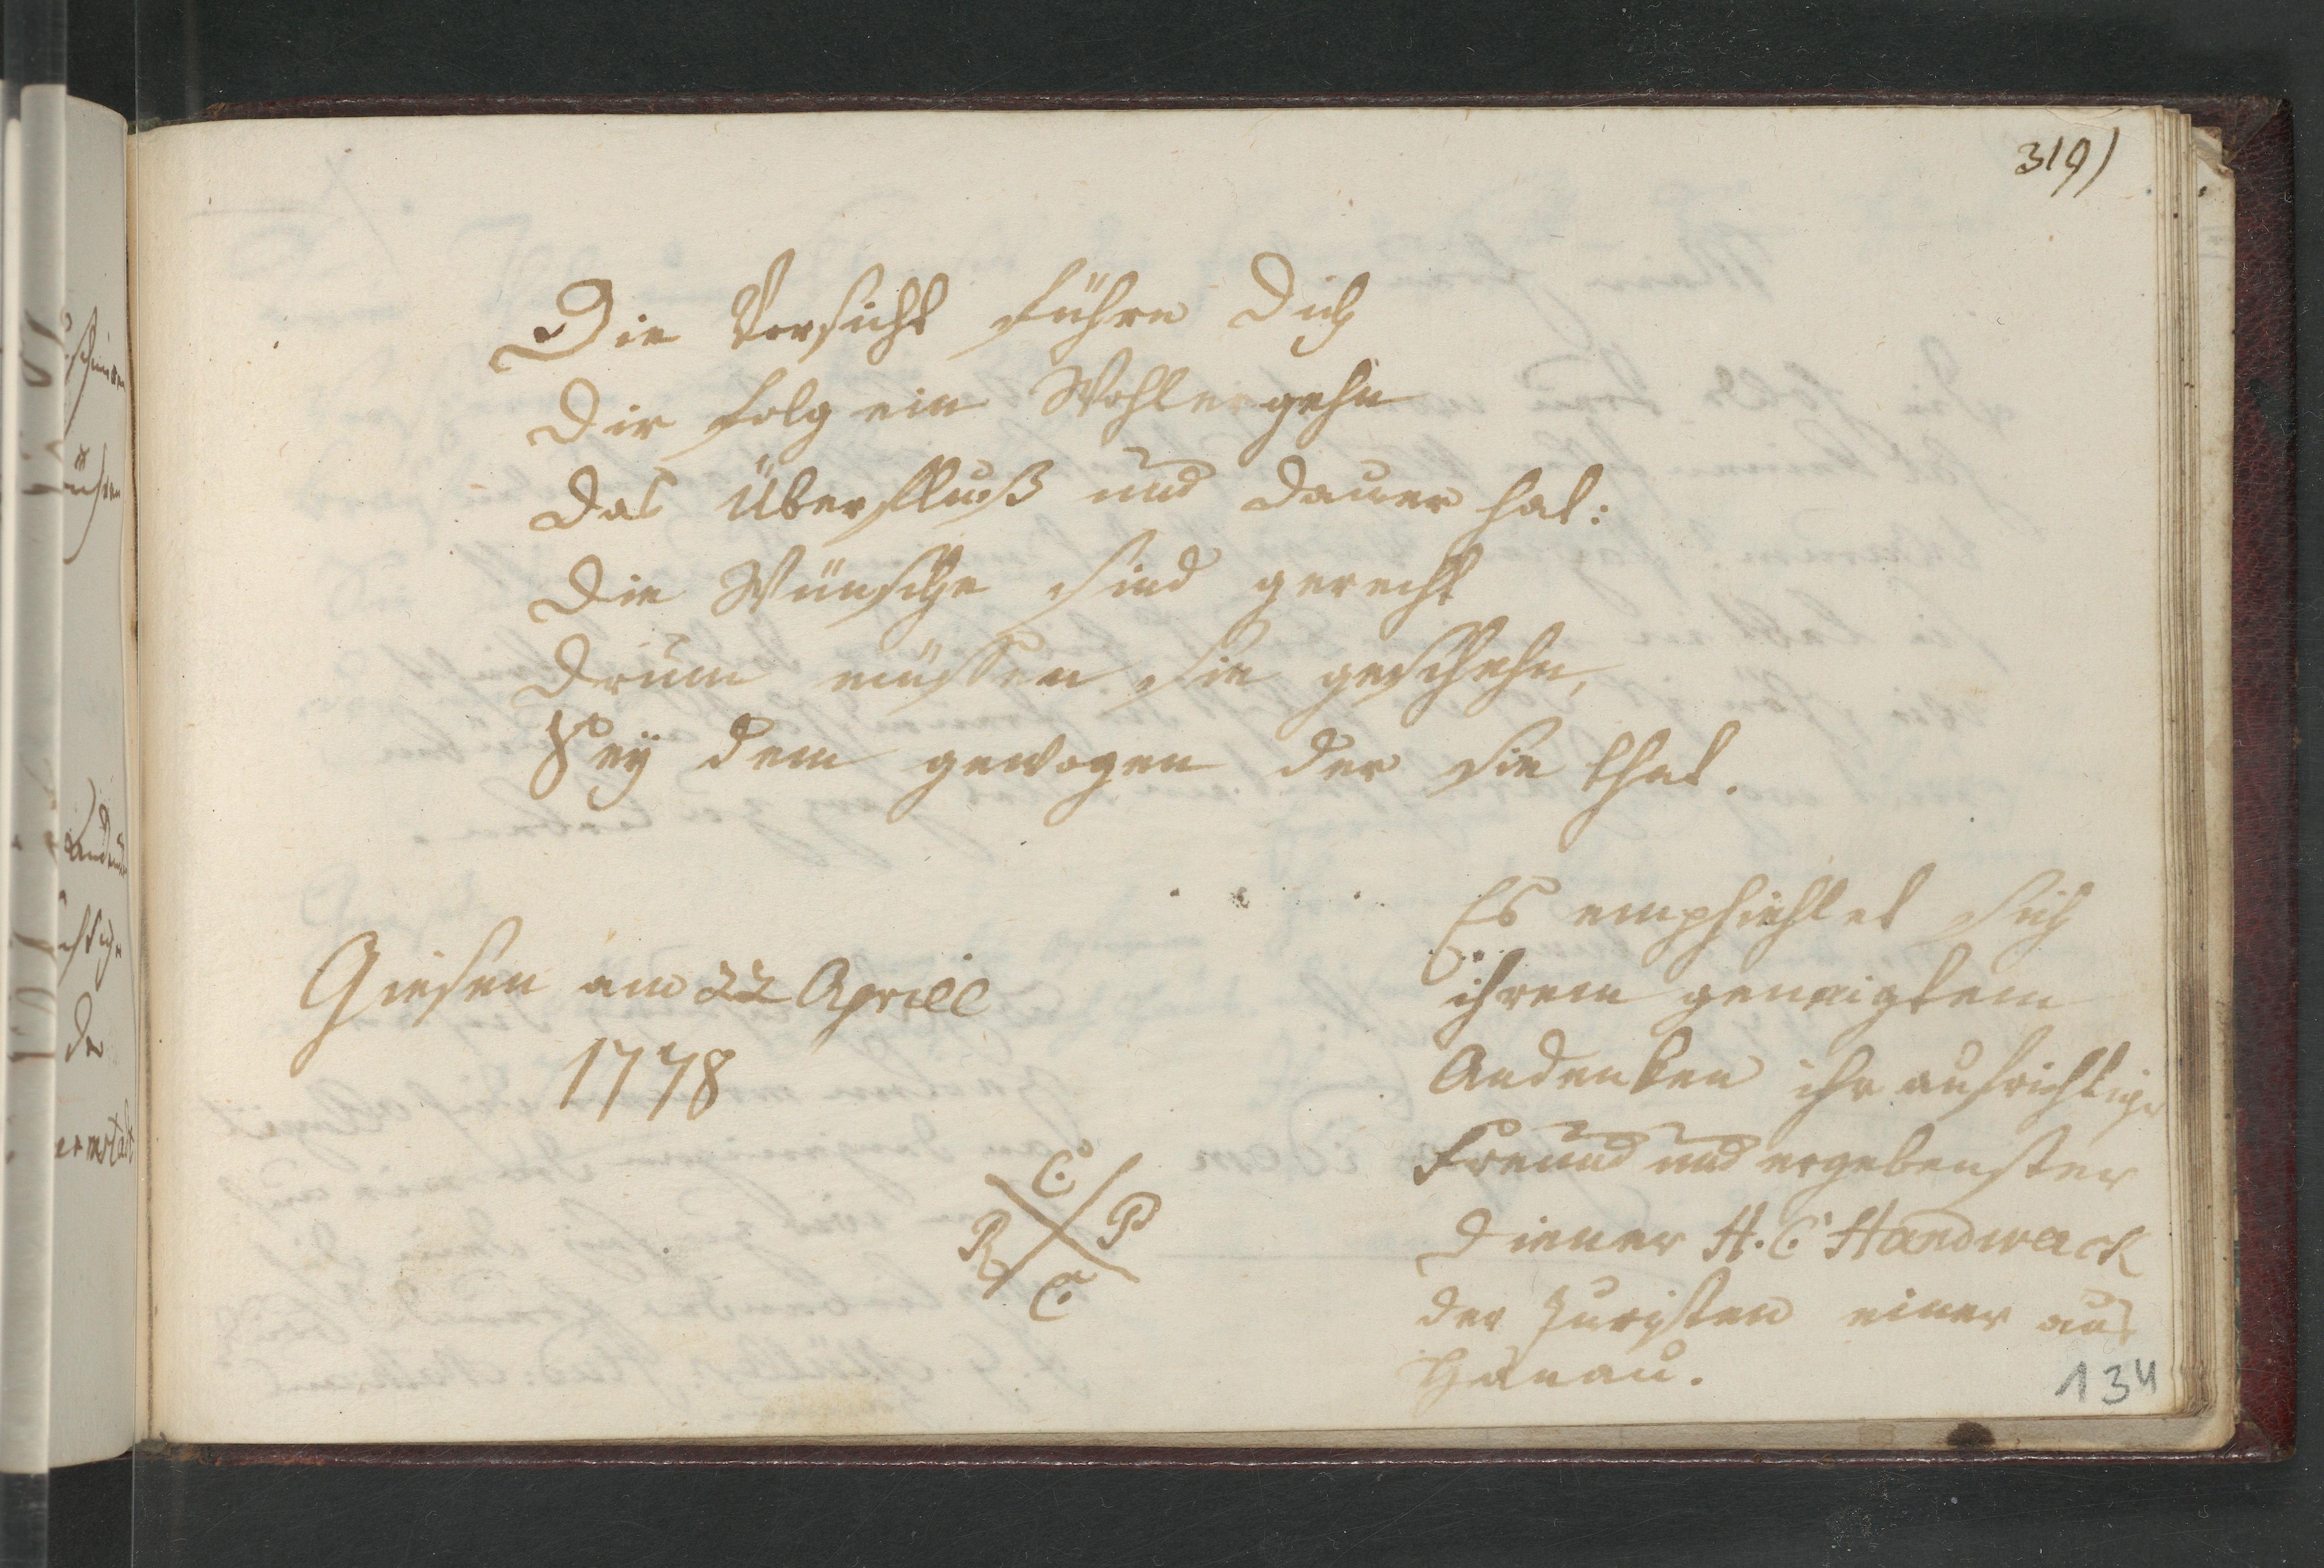 319)
Die Vorsicht führe Dich
Dir folg ein Wohlergehn
Das Überfluß und Dauer hat:
Die Wünsche sind gerecht
Drum müssen sie geschehn,
Sey dem gewogen der sie that.
Giesen am 22 Aprill
1778
C
R P
C
Es empfiehlet sich
ihrem geneigtem
Andenken ihr aufrichtiger
Freund und ergebenster
Diener H. C. Handwerck
der Juristen einer aus
Hanau.
134